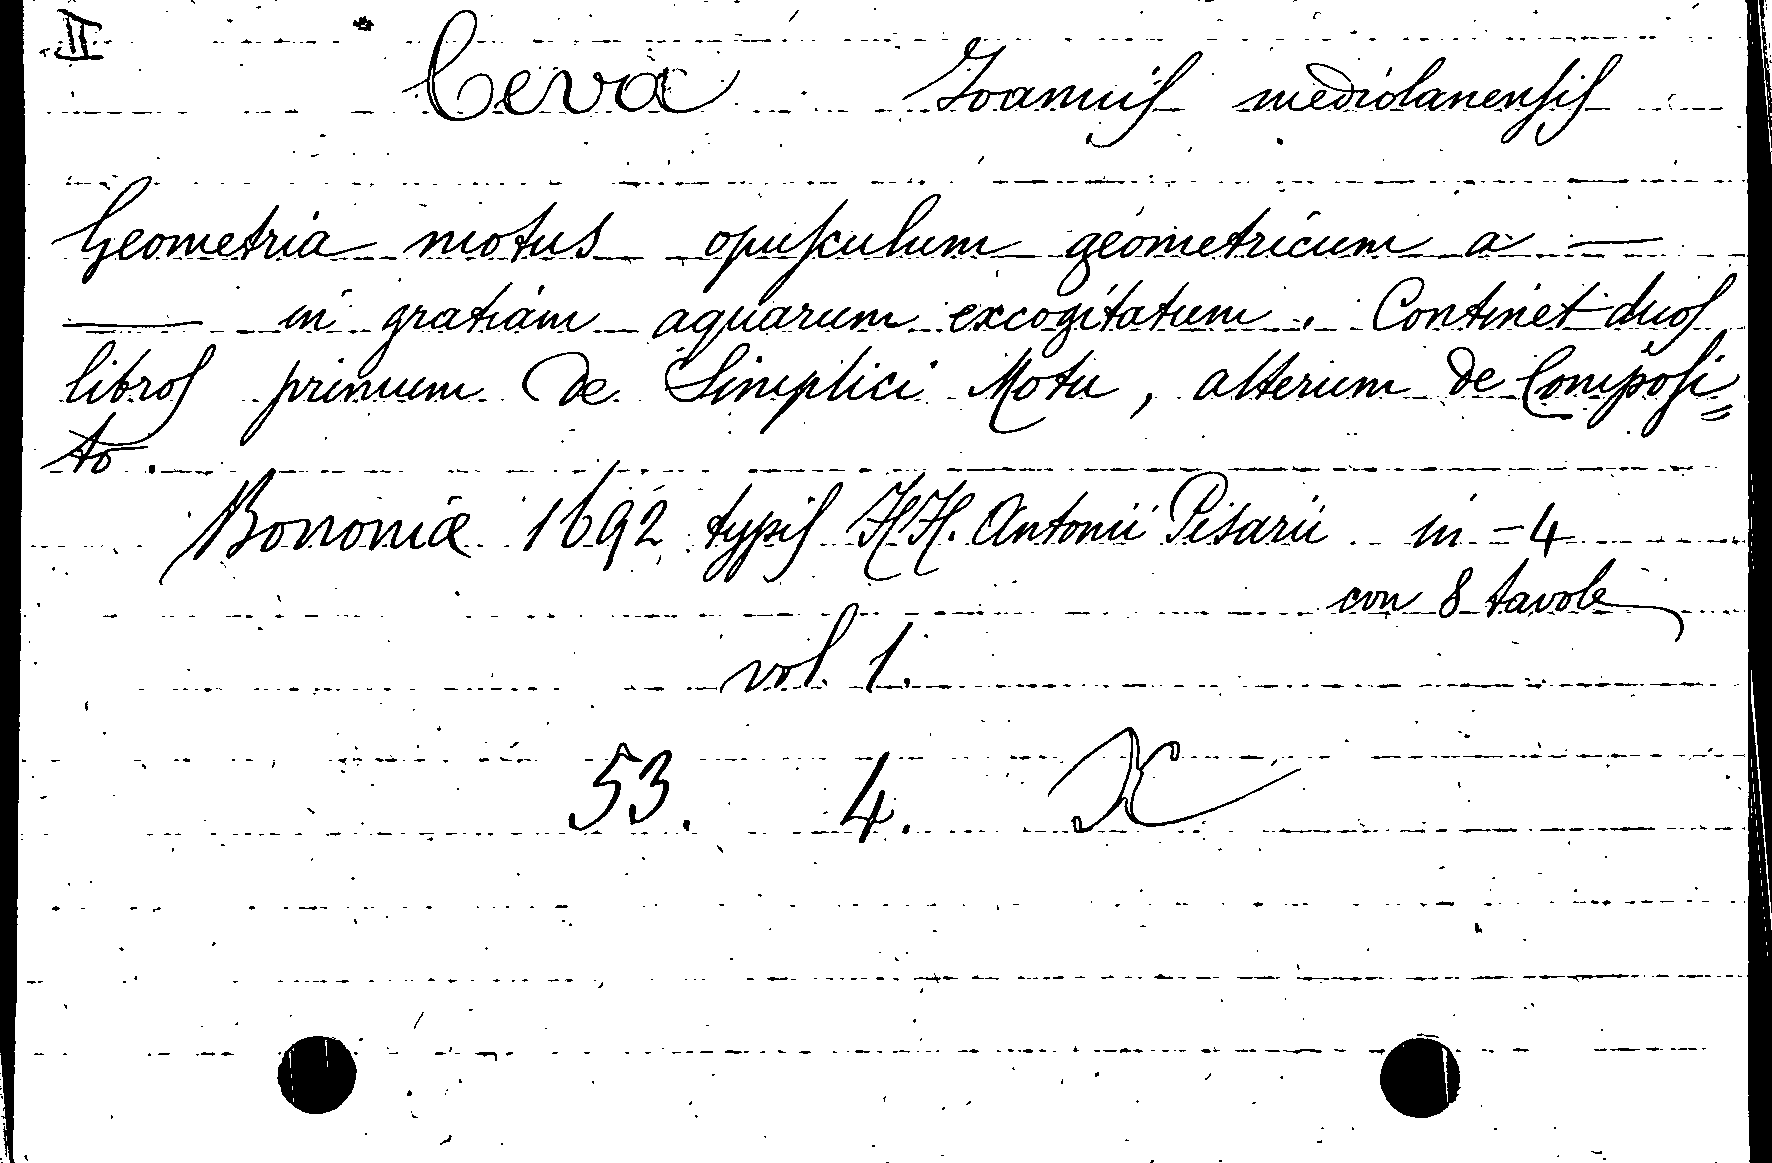 II
Ceva Joannis mediolanensis
Geometria motus opusculum geometricum a —
— in gratiam aquarum excogitatum. Continet duos
libros primum de Simplici Motu, alterum de Composi=
to.
Bononiæ 1692 typis HH. Antonii Pisarii in-4
con 8 tavole
vol. 1.
53. 4. X